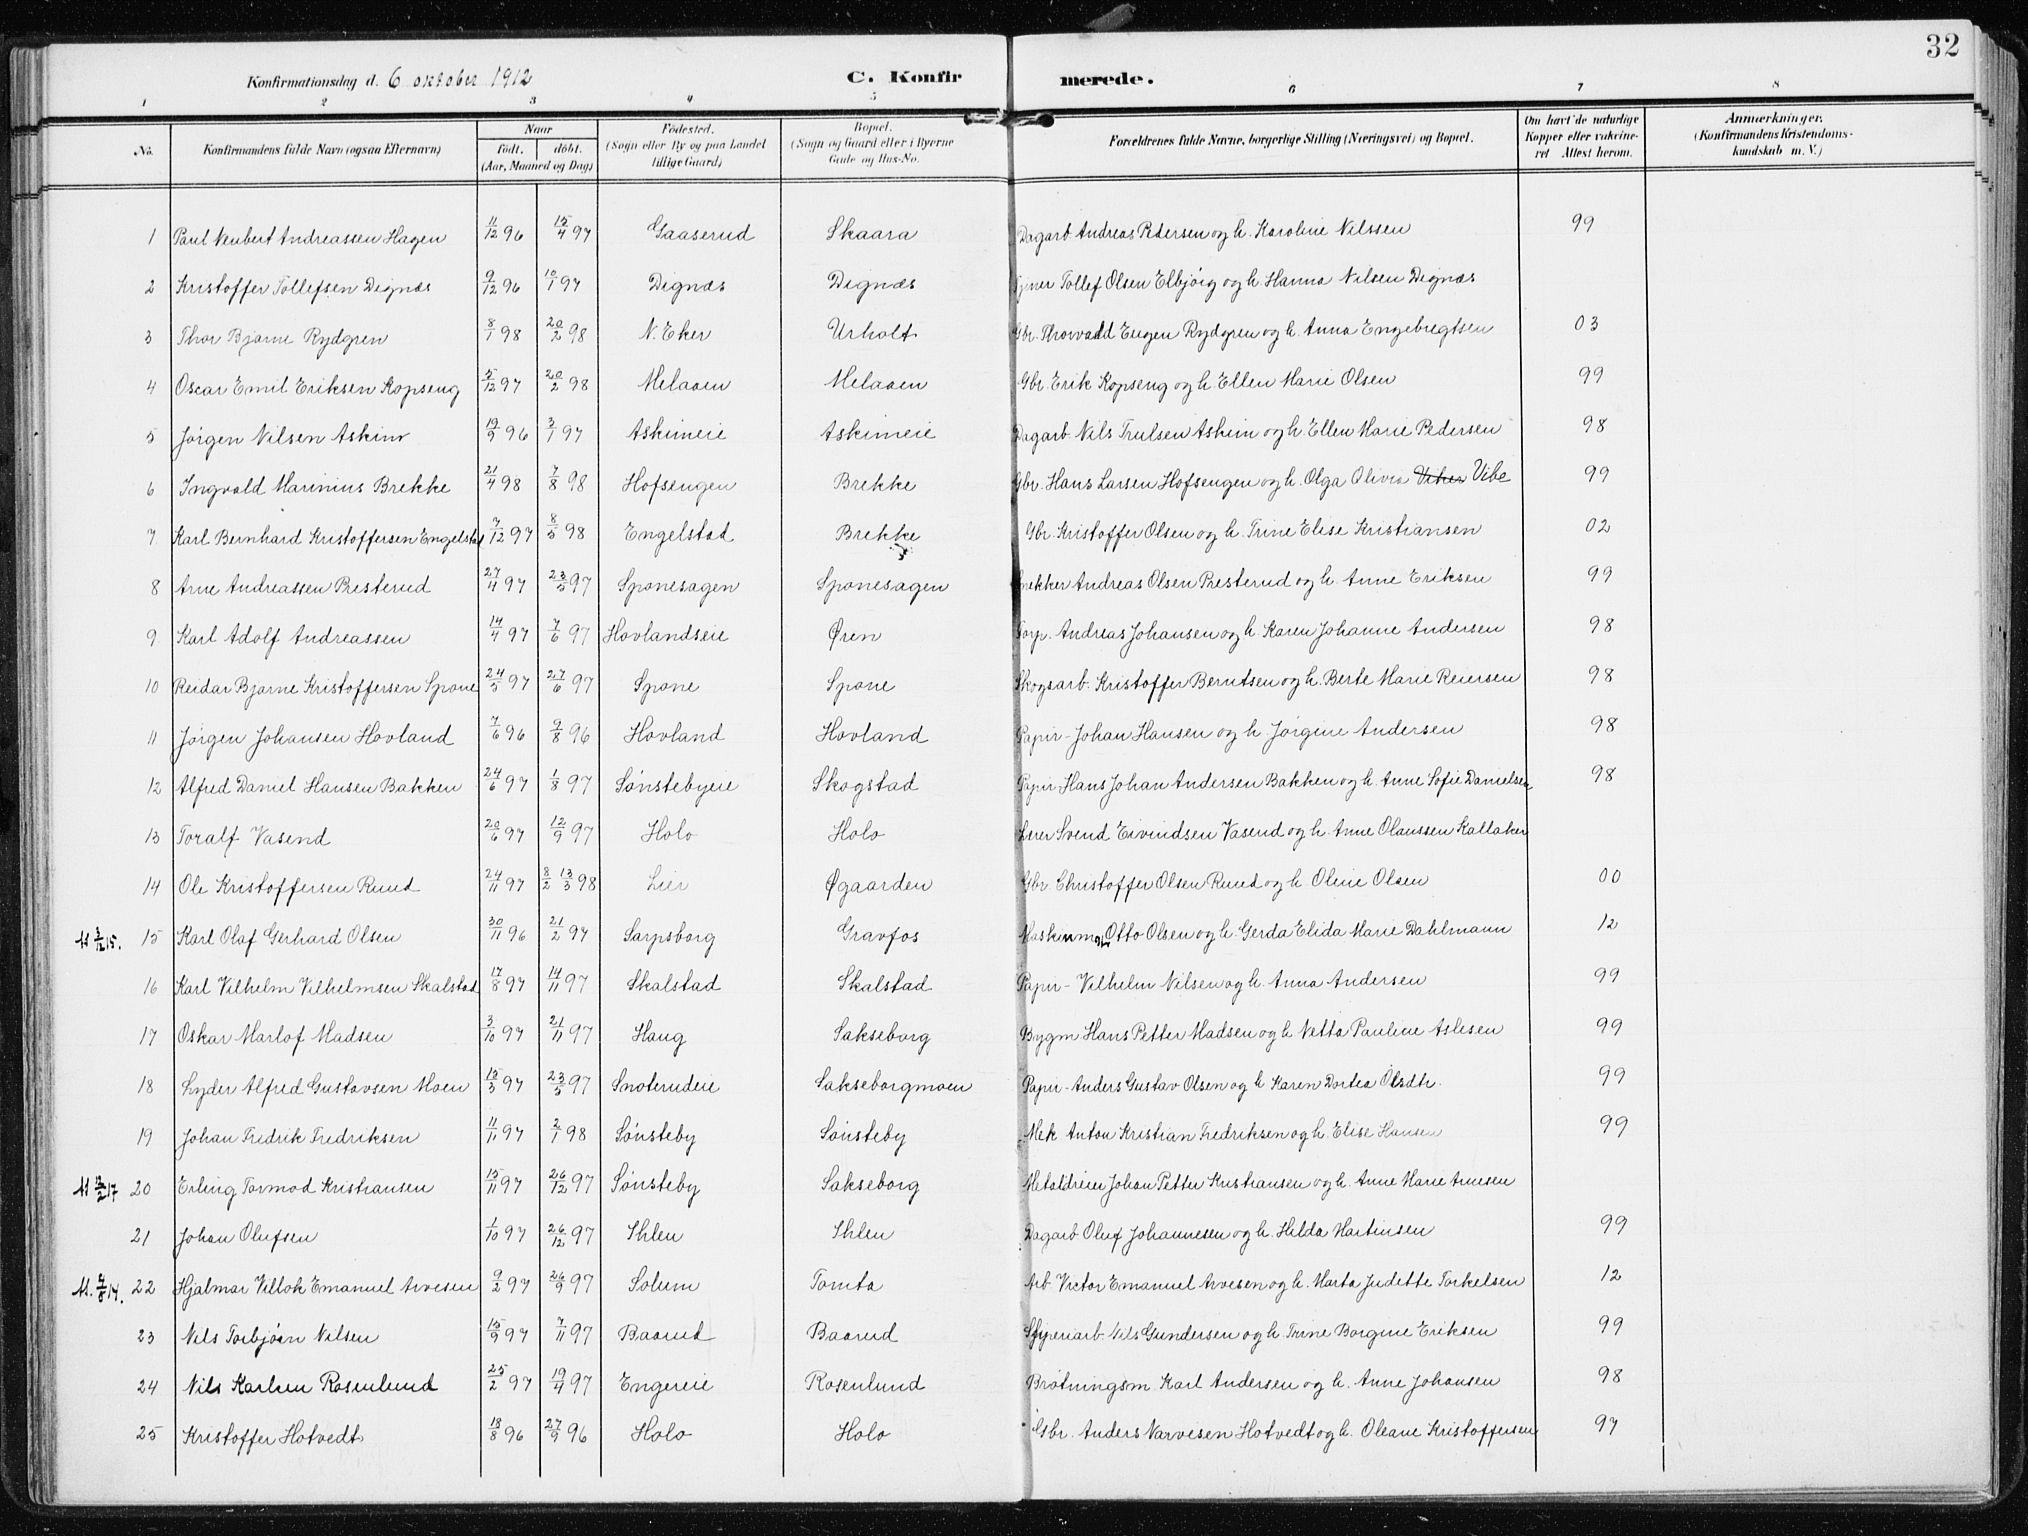 32
Konfirmationsdag d. 6 oktober 1912 C. Konfirmerede.
1 2 3 4 5 6 7 8
No. Konfirmandens fulde Navn (ogsaa Efternavn) Naar født. døbt. (Aar, Maaned og Dag) Fødested. (Sogn eller By og paa Landet tillige Gaard) Bopæl. (Sogn og Gaard eller i Byerne Gade og Hus-No. Forældrenes fulde Navne, borgerlige Stilling (Næringsvei) og Bopæl. Om havt de naturlige Kopper eller vakcineret Attest herom. Anmærkninger. (Konfirmandens Kristendomskundskab m. V.)
1 Paul Neubert Andreassen Hagen 11/12 96 15/4 97 Gaaserud Skaara Dagarb. Andreas Pedersen og h. Karoline Nilssen 99
2 Kristoffer Tollefsen Dignæs 9/12 96 10/1 97 Dignæs Dignæs Tollef Olsen Elbjörg og h. Hanna Nilsen Dignæs
3 Thor Bjarne Rydgren 8/1 98 20/2 98 N. Eker Urholt Gbr. Thorvald Eugen Rydgren og h. Anna Engebregtsen 03
4 Oscar Emil Eriksen Kopseng 5/12 97 20/2 98 Melaaen Melaaen Gbr. Erik Kopseng og h. Ellen Marie Olsen 99
5 Jörgen Nilsen Askim 19/9 96 3/1 97 Askimeie Askimeie Dagarb. Nils Trulsen Askim og h. Ellen Marie Pedersen 98
6 Ingvald Marinius Brekke 21/4 98 7/8 98 Hofsengen Brekke Gbr. Hans Larsen Hofsengen og h. Olga Olivia Viker Vibe 99
7 Karl Bernhard Kristoffersen Engelstad 7/12 97 8/5 98 Engelstad Brekke Gbr. Kristoffer Olsen og h. Trine Elise Kristiansen 02
8 Arne Andreassen Presterud 27/4 97 23/5 97 Sponesagen Sponesagen Snekker Andreas Olsen Presterud og h. Anne Eriksen 99
9 Karl Adolf Andreassen 14/4 97 7/6 97 Hovlandseie Øren Torp. Andreas Johansen og h. Karen Johanne Andersen 98
10 Reidar Bjarne Kristoffersen Spone 24/5 97 27/6 97 Spone Spone Skogsarb. Kristoffer Berntsen og h. Berte Marie Reiersen 98
11 Jörgen Johansen Hovland 7/6 96 9/8 96 Hovland Hovland Papir- Johan Hansen og h. Jörgine Andersen 98
12 Alfred Daniel Hansen Bakken 24/6 97 1/8 97 Sønstebyeie Skogstad Papir- Hans Johan Andersen Bakken og h. Anne Sofie Danielsen 98
13 Toralf Vasend 20/6 97 12/9 97 Holo Holo Lærer Svend Eivindsen Vasend og h. Anne Olaussen Kallaker
14 Ole Kristoffersen Ruud 24/11 97 8/2 13/3 98 Lier Øgaarden Gbr. Christoffer Olsen Ruud og h. Oline Olsen 00
15 Karl Olaf Gerhard Olsen 30/11 96 21/2 97 Sarpsborg Gravfos Maskinm. Otto Olsen og h. Gerda Elida Marie Dahlmann 12
16 Karl Vilhelm Vilhelmsen Skalstad 17/8 97 14/11 97 Skalstad Skalstad Papir- Vilhelm Nilsen og h. Anna Andersen 99
17 Oskar Marlof Madsen 3/10 97 21/11 97 Haug Sakseborg Bygm Hans Petter Madsen og h. Netta Pauline Aslesen 99
18 Lyder Alfred Gustavsen Moen 13/3 97 23/5 97 Snoterudeie Sakseborgmoen Papir- Anders Gustav Olsen og h Karen Dortea Olsdtr. 99
19 Johan Fredrik Fredriksen 11/11 97 2/1 98 Sönsteby Sönsteby Mek Anton Kristian Fredriksen og h. Elise Hansen 99
20 Erling Tormod Kristiansen 15/11 97 26/12 97 Sönsteby Sakseborg Metaldreier Johan Petter Kristiansen og h. Anne Marie Arnesen
21 Johan Olufsen 1/10 97 26/12 97 Ihlen Ihlen Dagarb Oluf Johannesen og h. Hilda Martinsen 99
22 Hjalmar Villok Emanuel Arvesen 9/2 97 26/9 97 Solum Tomta Arb. Victor Emanuel Arvesen og h. Marta Judette Torkelsen 12
23 Nils Torbjörn Nilsen 15/9 97 7/11 97 Baarud Baarud Sliperiarb. Nils Gundersen og h. Trine Borgine Eriksen 99
24 Nils Karlsen Rosenlund 25/2 97 19/4 97 Engereie Rosenlund Brötningsm Karl Andersen og h. Anne Johansen 98
25 Kristoffer Hotvedt 18/8 96 27/9 96 Holo Holo Gbr. Anders Narvesen Hotvedt og h. Oleane Kristoffersen 97